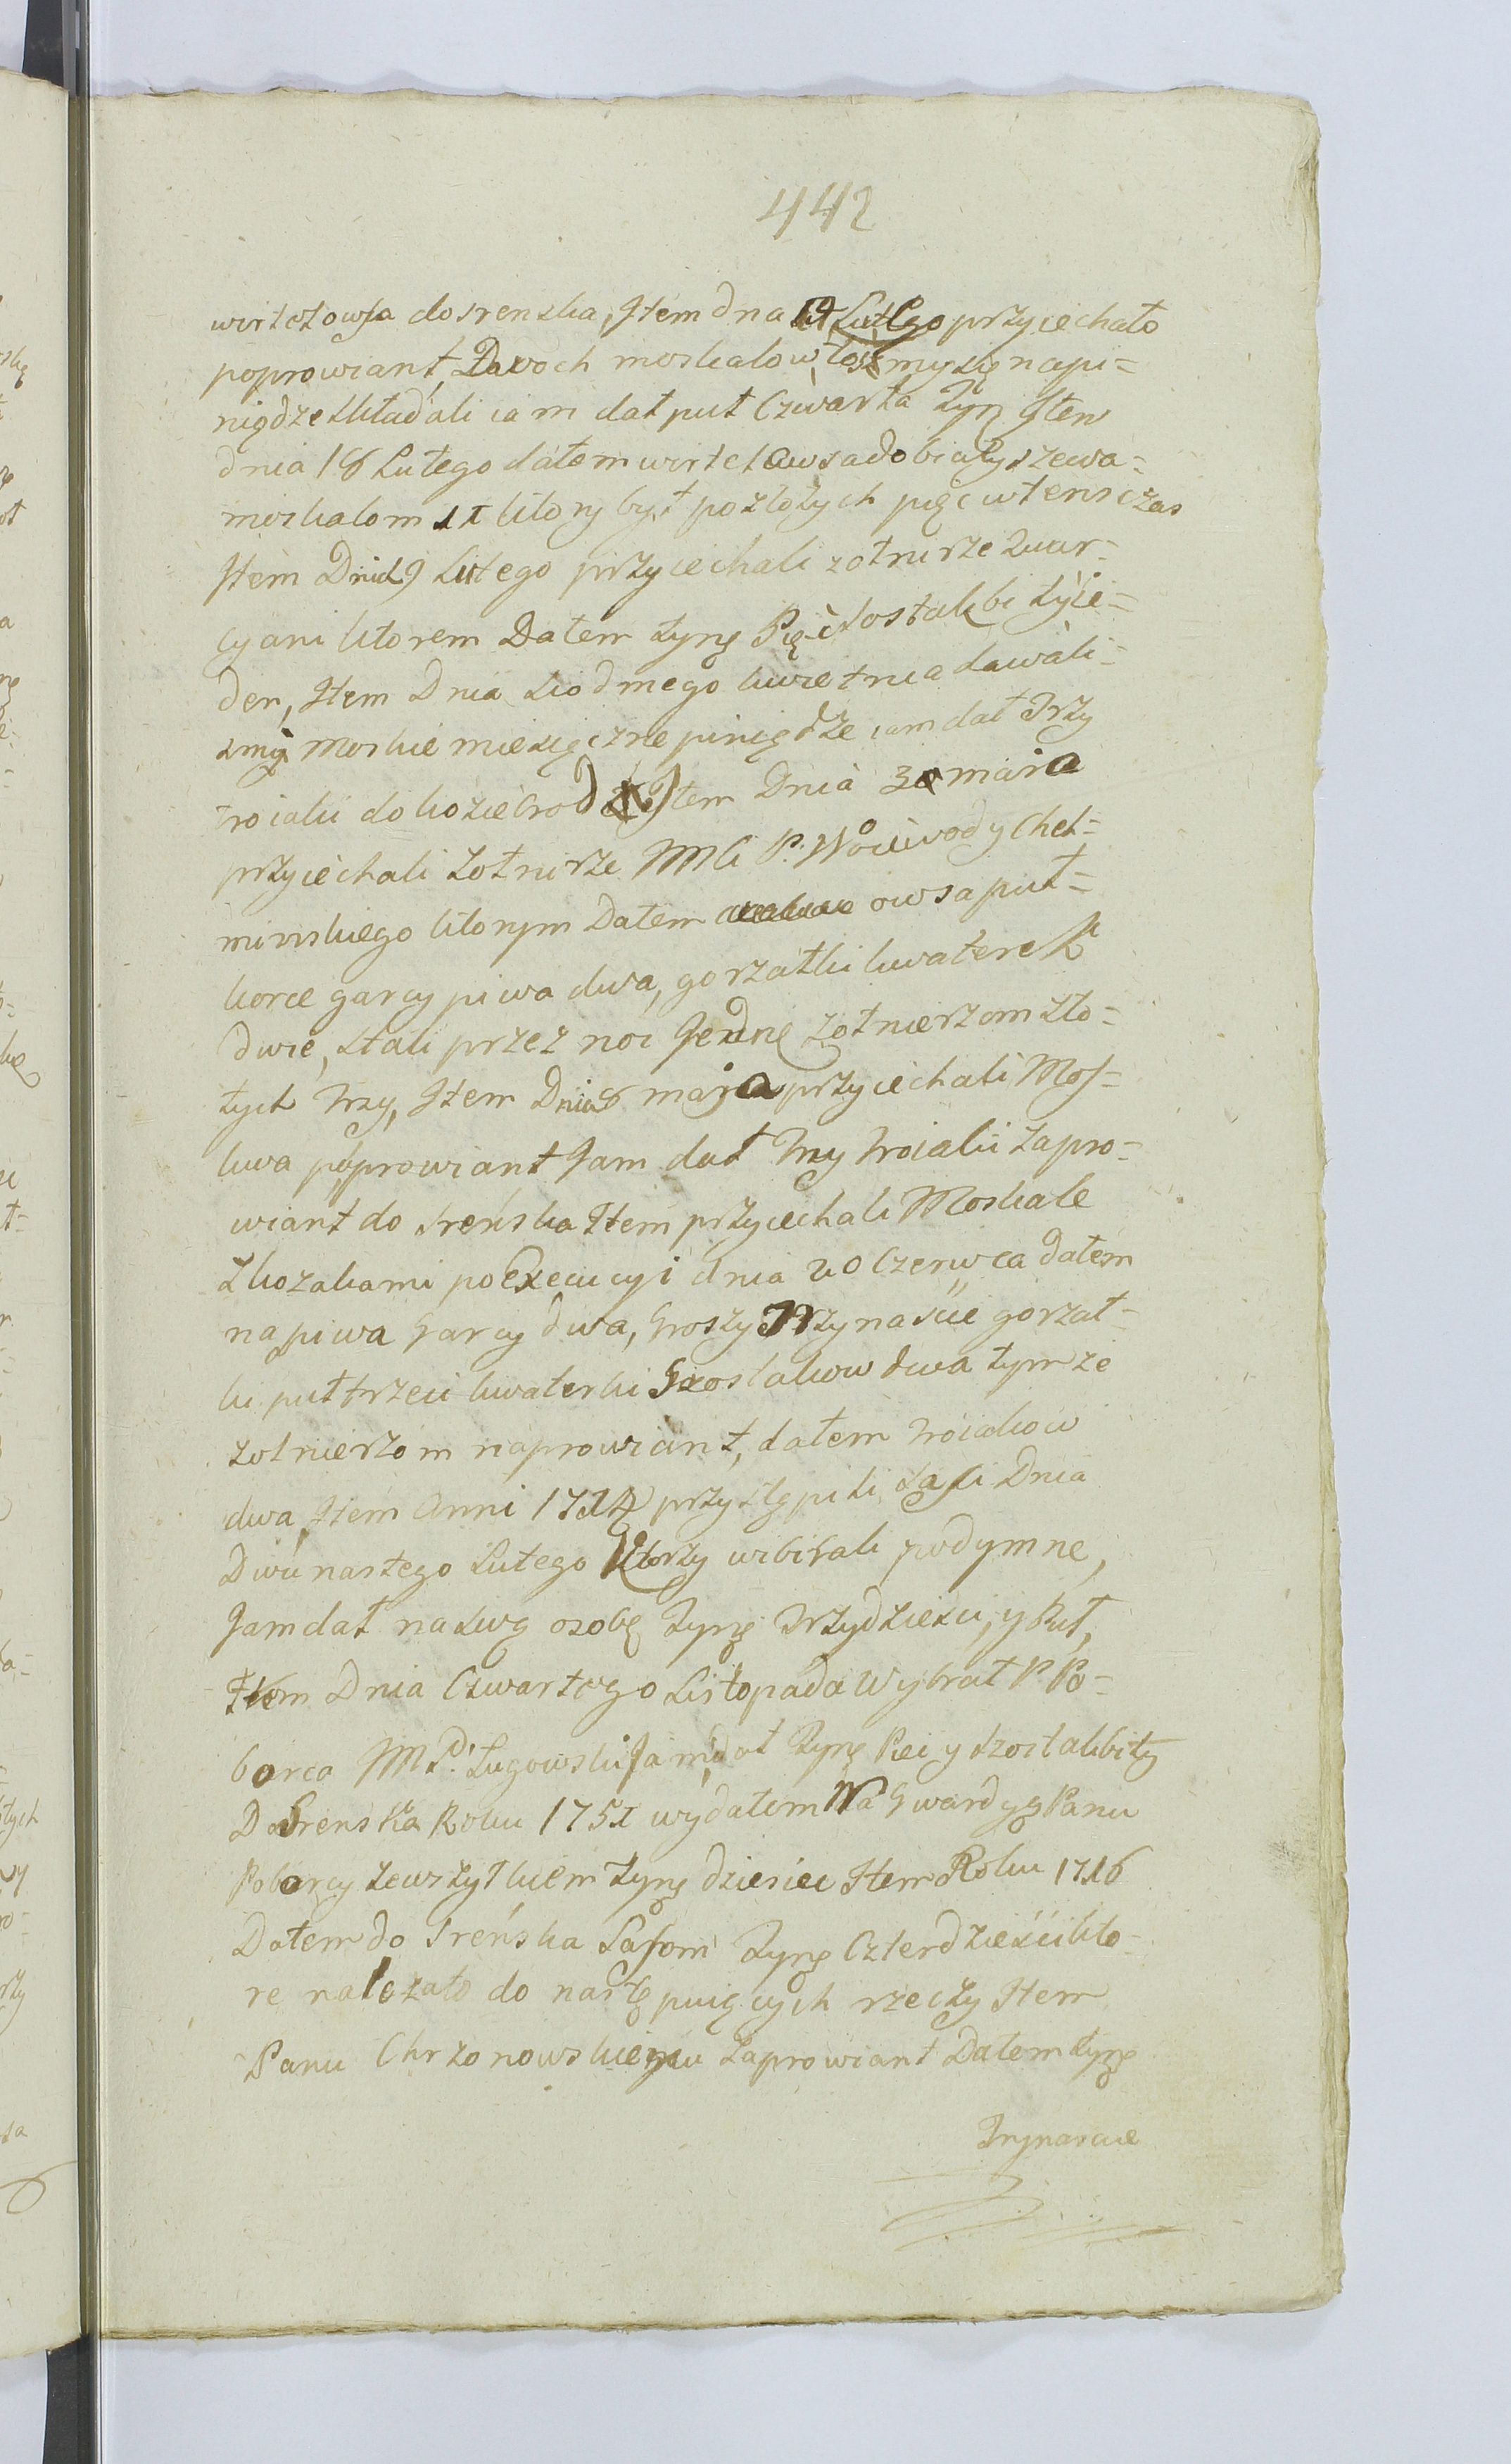 442
wirtel owsa do srenska, Item dna 14 Lutego przyiechało
poprowiant Dwoch moskalow, tosmysię napi=
niądze składali iam dał puł Czwarta Tynf Item
dnia 18 Lutego dałem wirtel owsa do białyszewa=
moskalom 11 ktory był pozłotych pięc wtenszas
Item Dnia 19 Lutego przyiechali zołnirze kwar=
cyani ktorem Dałem tynfę Pięc szostak bity ie=
den, Item Dnia siodmego kwietnia dawali=
smy Moskie miesięczne piniądze iam dał Trzy
troiaki do koziebrod Item Dnia 3 maia
przyiechali Zołnirze JMCi P: Woiewody Cheł=
minskiego ktorym Dałem owsa puł=
korce garcy piwa dwa, gorzałki kwaterek
dwie, stali przez noc Jednę zołnierzom zło=
tych trzy, Item Dnia 8 maja przyiechali Mos=
kwa poprowiant Jam dał trzy troiaki zapro=
wiant do srenska Item przyiechali Moskale
zkozakami po Execucyi dnia 20 Czerwca dałem
na piwa garcy dwa, groszy Trzynascie gorzał=
ki puł trzeci kwaterki Szostakow dwa tymze
zolnierzom naprowiant, dałem troiakow
dwa, Item Anni 1714 przystępili sasi Dnia
Dwunastego Lutego Ktorzy wibirali podymne,
Jam dał naswą osobę Tynfę Trzydziesci, y Puł,
Item Dnia Czwartego Listopada Wybrał P. Po=
borca JMP. Lugowski Jam dał Tynfę Pięc y szostak bity
Do Srenska Roku 1751 wydałem Na Gwardyę Panu
Poborcy zewszytkiem tynfę dziesiec Item Roku 1716
Dałem do Sreńska Sasom Tynfę Czterdziescikto=
re nalezało do następuiących rzeczy Item
Panu Chrzonowskiemu zaprowiant Dałem tynfę
Trzynascie